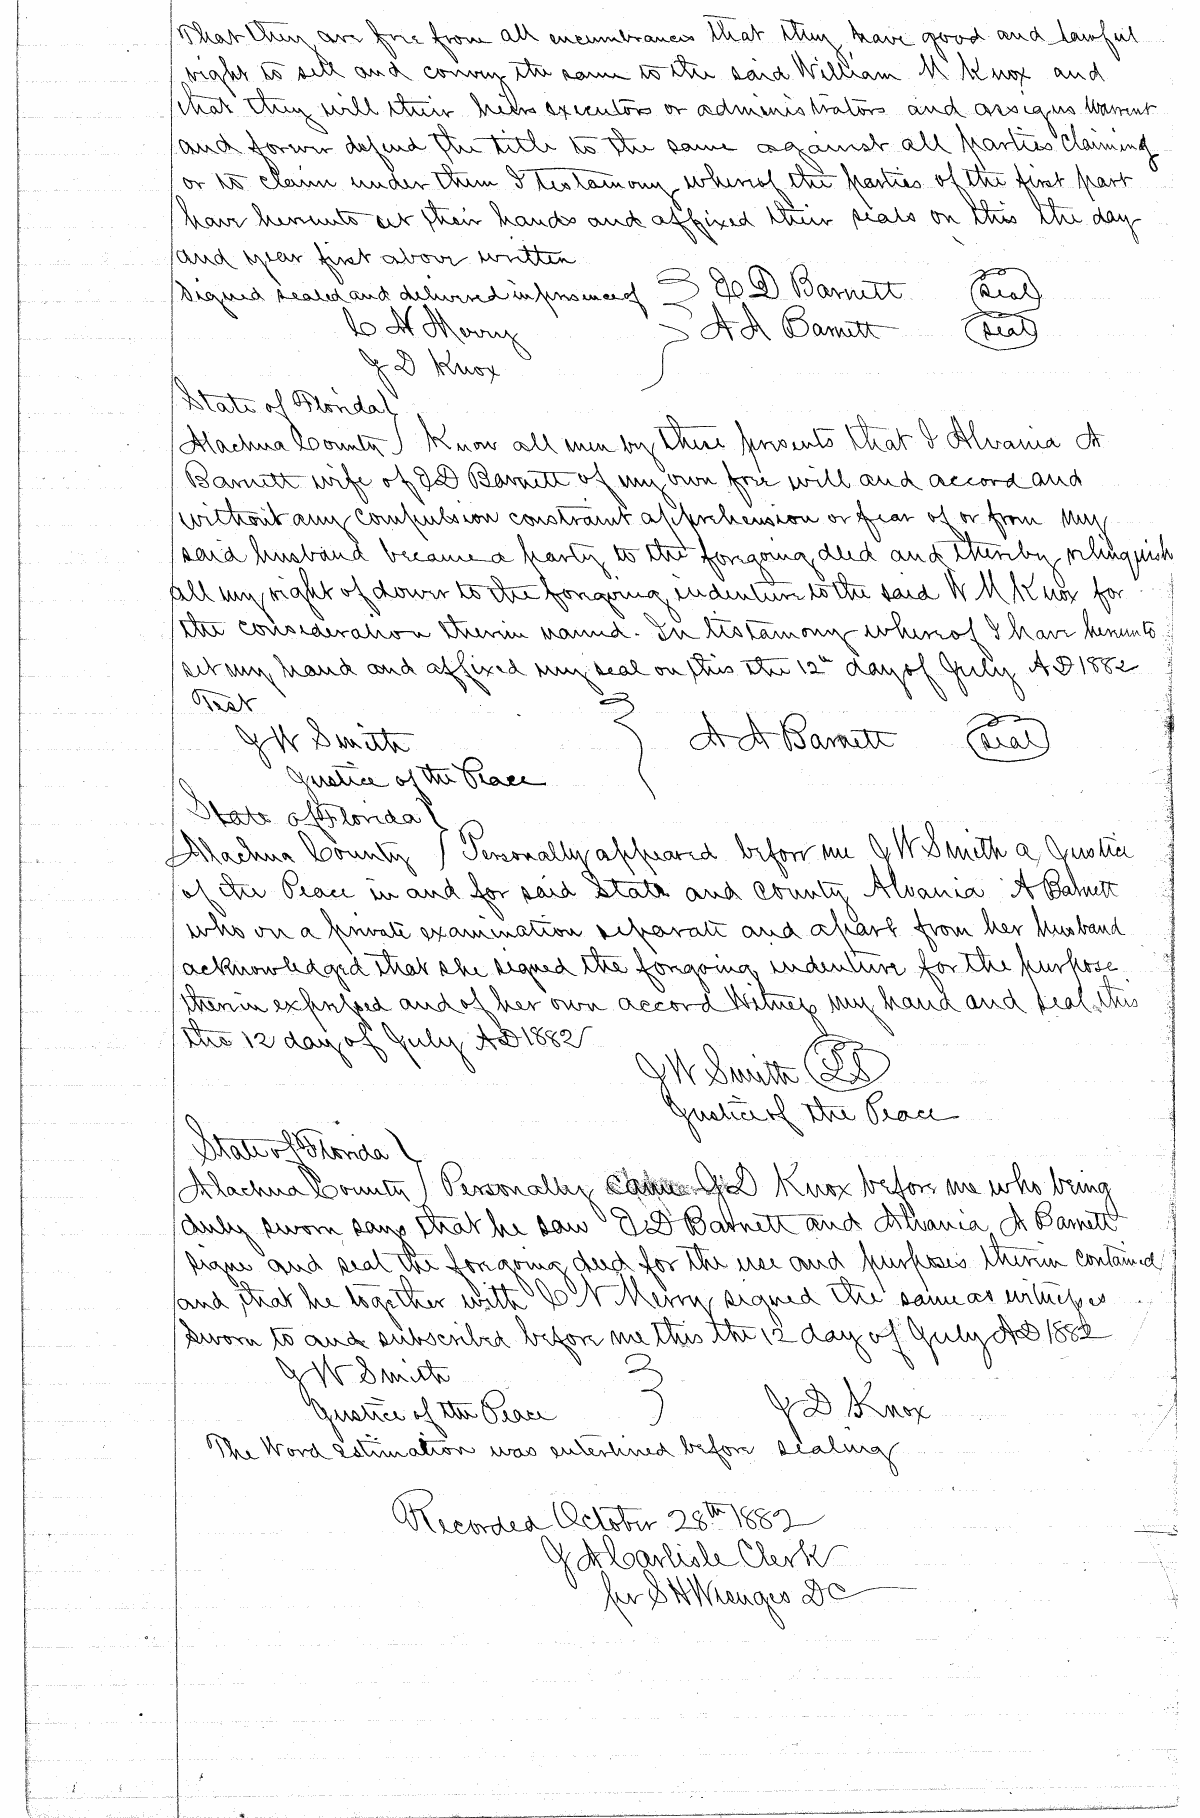 That they are free from all encumbrances that they have good and lawful
right to sell and convey the same to the said William M Knox and
that they will their heirs executors or administrators and assigns warrent
and forever defend the title to the same against all parties claiming
or to claim under them I testamony whereof the parties of the first part
have hereunto set their hands and affixed their seals on this the day
and year first above written
Signed sealed and delivered in presence of D Barnett (seal)
C N Merry A A Barnett (seal)
J D Knox
State of Florida
Alachua County Know all men by these presents that I Alvania A
Barnett wife of D Barnett of my own free will and accord and
without any compulsion constraint apprehension or fear of or from my
said husband became a party to the foregoing deed and thereby relinquish
all my right of dower to the foregoing indenture to the said W M Knox for
the consideration therein named. In testamony whereof I have hereunto
set my hand and affixed my seal on this the 12th day of July AD 1882
Test
J W Smith A A Barnett (seal)
Justice of the Peace
State of Florida
Alachua County Personally appeared before me J W Smith a Justice
of the Peace in and for said State and County Alvania A Barnett
who on a private examination separate and apart from her husband
acknowledged that she signed the forgoing indenture for the purpose
therein expressed and of her own accord Witness my hand and seal this
the 12 day of July AD 1882
J W Smith (LS)
Justice of the Peace
State of Florida
Alachua County Personally came J D Knox before me who being
duly sworn says that he saw D Barnett and Alvania A Barnett
signe and seal the forgoing deed for the use and purposes therin contained
and that he together with C N Merry signed the same as witnesses
Sworn to and subscribed before me this the 12 day of July AD 1882
J W Smith
Justice of the Peace J D Knox
The Word estimation was enterlined before sealing
Recorded October 28th 1882
J A Carlisle Clerk
per S H Wienges DC